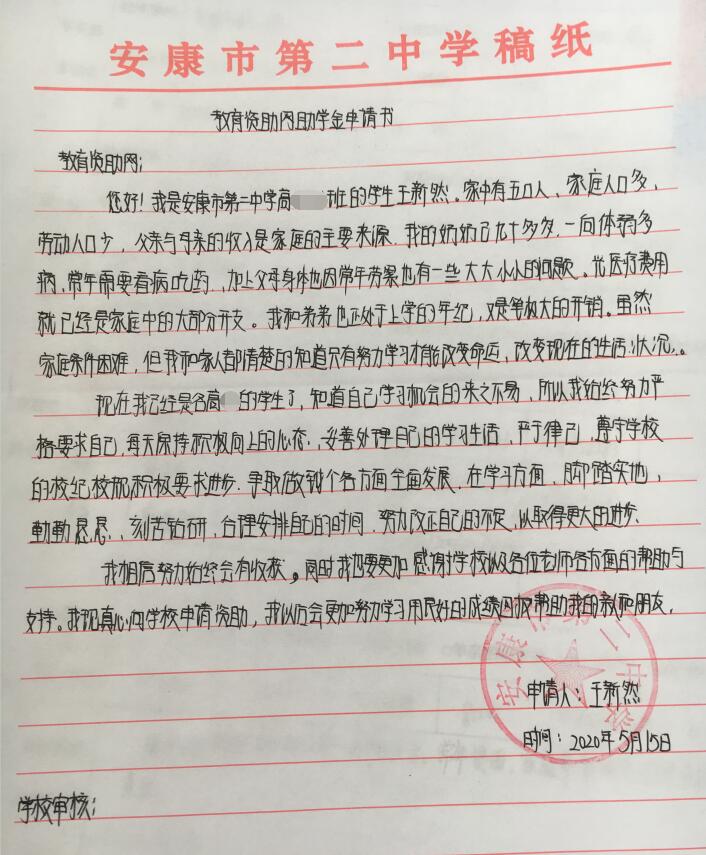 安康市第二中学稿纸
教育资助网助学金申请书
教育资助网:
您好!我是安康市第二中学高 班的学生王新然。家中有五口人、家庭人口多,
劳动人口少,父亲与母亲的收入是家庭的主要来源.我的奶奶已九十多岁,一向体弱多
病,常年需要看病吃药、加上父母身体也因常年劳累也有一些大大小小的问题。光医疗费用
就已经是家庭中的大部分开支。我和弟弟也正处于上学的年纪,又是笔极大的开销。虽然
家庭条件困难,但我和家人都清楚的知道只有努力学习才能改变命运,改变现在的生活状况。
现在我已经是名高 的学生了,知道自己学习机会的来之不易,所以我始终努力严
格要求自己,每天保持积极向上的心态,妥善处理自己的学习生活,严于律己,遵守学校
的校纪校规积极要求进步.争取做到个各方面全面发展.在学习方面,脚踏实地,
勤勤恳恳、刻苦钻研,合理安排自己的时间.努力改正自己的不足,以取得更大的进步.
我相信努力始终会有收获。同时我也要更加感谢学校以及各位老师各方面的帮助与
支持。我现真心向学校申请资助,我以后会更加努力学习用良好的成绩回报帮助我的老师和朋友.
申请人:王新然
时间:2020年5月15日
学校审核:
安康市第二中学